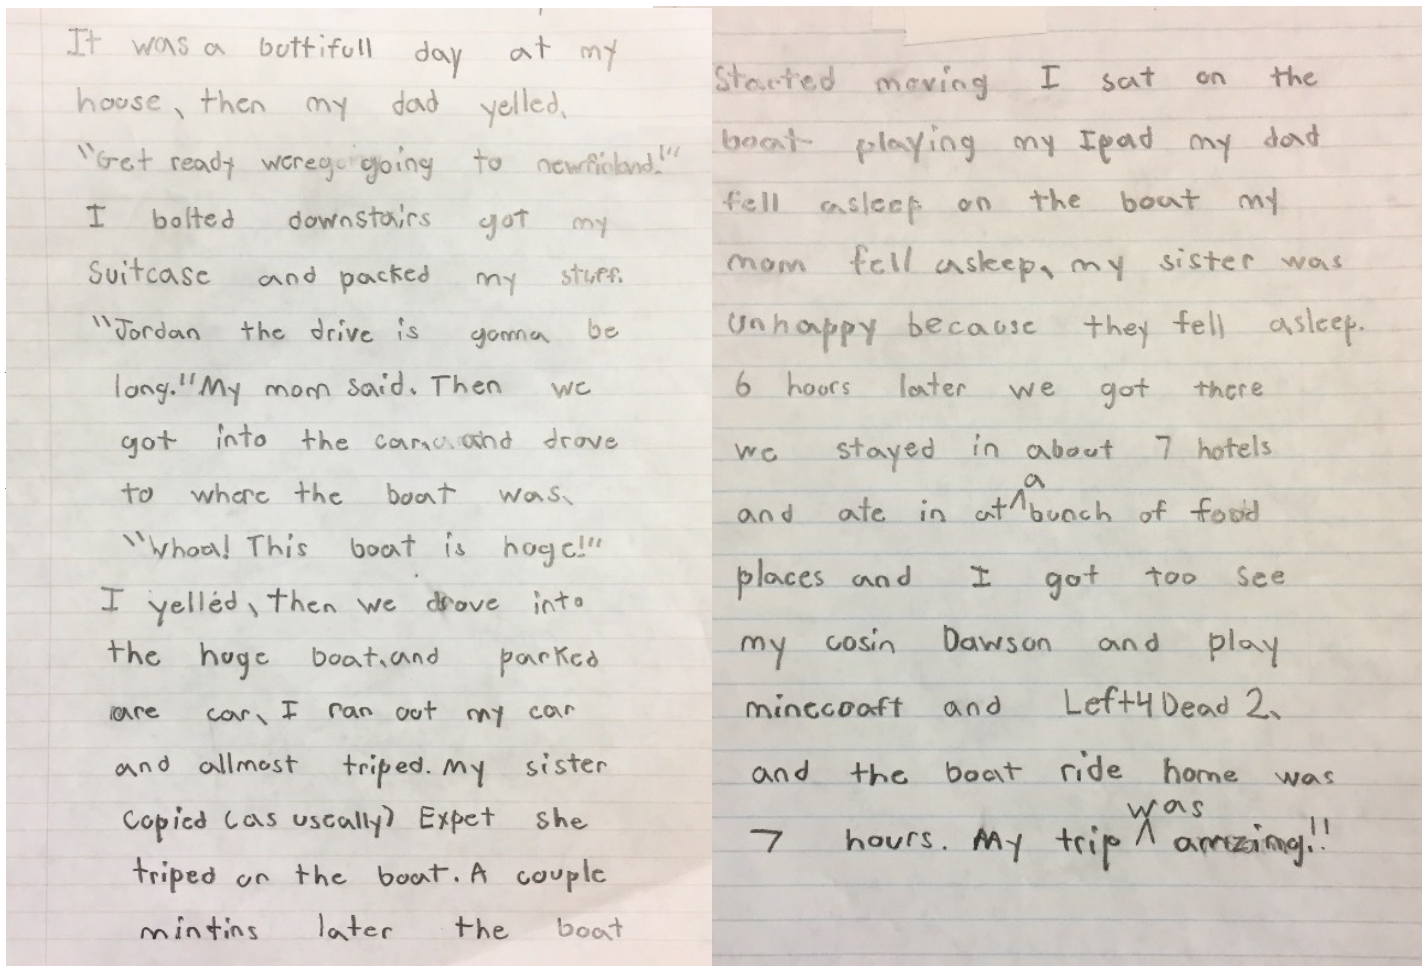 It was a buttifull day at my
house, then my dad yelled,
"Get ready wereg going to newfinland!"
I bolted downstairs got my
suitcase and packed my stuff.
"Jordan the drive is gonna be
long." My mom said. Then we
got into the car and drove
to where the boat was,
"Whoa! This boat is huge!"
I yelled, then we drove into
the huge boat, and parked
are car, I ran out my car
and allmost triped. My sister
copied (as uscally) Expet she
triped on the boat. A couple
mintins later the boat
Started moving I sat on the
boat playing my Ipad my dad
fell asleep on the boat my
mom fell asleep, my sister was
unhappy because they fell asleep.
6 hours later we got there
we stayed in about 7 hotels
and ate in at a bunch of food
places and I got too see
my cosin Dawson and play
minecraft and Left4Dead 2,
and the boat ride home was
7 hours. My trip was amzing!!